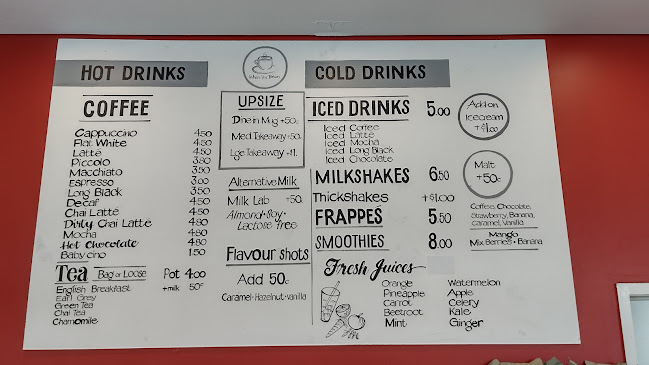 HOT DRINKS
COFFEE
Cappuccino 4.50
Flat White 4.50
Latte 4.50
Piccolo 3.80
Macchiato 3.50
Espresso 3.00
Long Black 4.50
Decaf 4.50
Chai Latte 4.50
Dirty Chai Latte 4.80
Mocha 4.80
Hot Chocolate 4.80
Babycino 1.50
Tea Bag or Loose Pot 4.00
English Breakfast +milk 50c
Earl Grey
Green Tea
Chai Tea
Chamomile
UPSIZE
Dine in Mug +50c
Med Takeaway +50c
Lge Takeaway +1.
Alternative Milk
Milk Lab +50c
Almond • Soy •
Lactose Free
Flavour shots
Add 50c
Caramel • Hazelnut • vanilla
COLD DRINKS
ICED DRINKS 5.00
Iced Coffee
Iced Latte
Iced Mocha
Iced Long Black
Iced Chocolate
MILKSHAKES 6.50
Thickshakes +$1.00
FRAPPES 5.50
SMOOTHIES 8.00
Add on
Icecream
+$1.00
Malt
+50c
Coffee, Chocolate,
Strawberry, Banana,
Caramel, Vanilla
Mango
Mix Berries • Banana
Fresh Juices
Orange
Pineapple
Carrot
Beetroot
Mint
Watermelon
Apple
Celery
Kale
Ginger